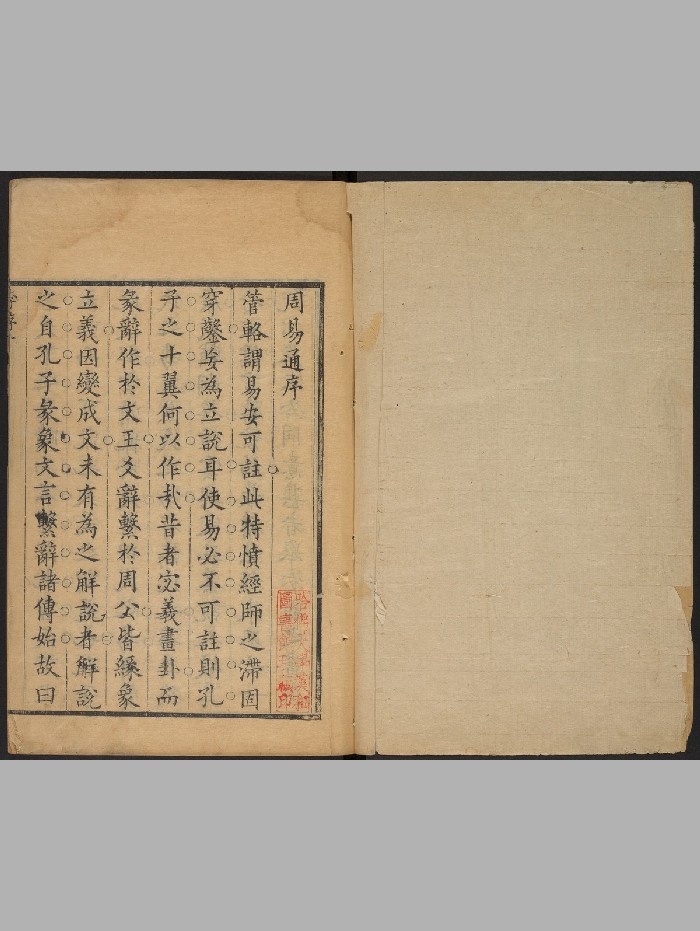 周易通序
管輅謂易安可註此特憤經師之滯固
穿鑿妄為立說耳使易必不可註則孔
子之十翼何以作㢤昔者宓義畫卦而
彖辭作於文王爻辭繫於周公皆緣象
立義因變成文未有為之解說者解說
之自孔子彖象文言繫辭諸傳始故曰